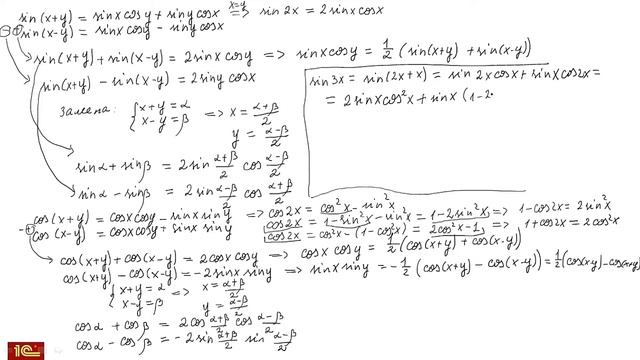 sin(x+y) = sinx cosy + siny cosx =x=y=> sin 2x = 2 sinx cosx
sin(x-y) = sinx cosy - siny cosx
sin(x+y) + sin(x-y) = 2 sinx cosy => sinx cosy = 1/2 (sin(x+y) + sin(x-y))
sin(x+y) - sin(x-y) = 2 siny cosx
sin 3x = sin(2x+x) = sin 2x cosx + sinx cos2x =
= 2 sinx cos²x + sinx (1-2
Замена: { x+y = α
x-y = β => x = (α+β)/2
y = (α-β)/2
sinα + sinβ = 2 sin (α+β)/2 cos (α-β)/2
sinα - sinβ = 2 sin (α-β)/2 cos (α+β)/2
cos(x+y) = cosx cosy - sinx siny => cos2x = cos²x - sin²x
cos2x = 1-sin²x - sin²x = 1-2sin²x => 1-cos2x = 2 sin²x
cos(x-y) = cosx cosy + sinx siny
cos2x = cos²x - (1-cos²x) = 2cos²x - 1 => 1+cos2x = 2 cos²x
cos(x+y) + cos(x-y) = 2 cosx cosy => cosx cosy = 1/2 (cos(x+y) + cos(x-y))
cos(x+y) - cos(x-y) = -2 sinx siny => sinx siny = -1/2 (cos(x+y) - cos(x-y)) = 1/2 (cos(x-y) - cos(x+y))
{ x+y = α
x-y = β => x = (α+β)/2
y = (α-β)/2
cosα + cosβ = 2 cos (α+β)/2 cos (α-β)/2
cosα - cosβ = -2 sin (α+β)/2 sin (α-β)/2
1С